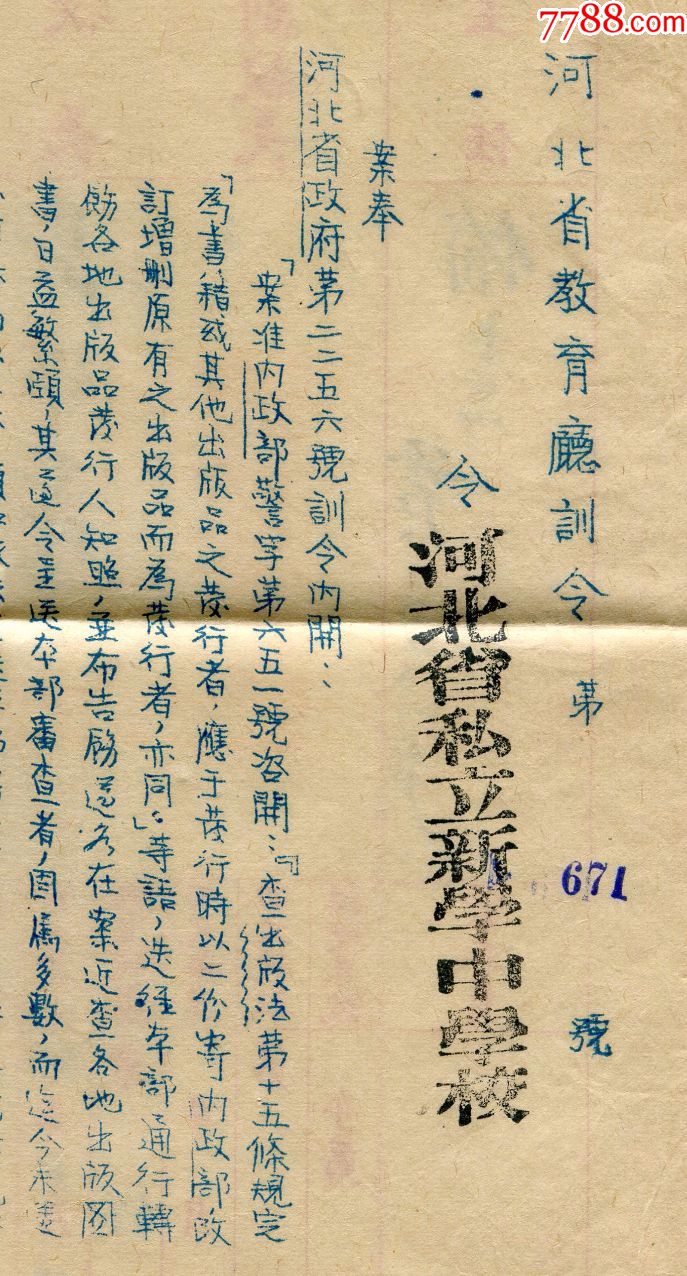 7788.com
河北省教育廳訓令 第 671 號
令 河北省私立新學中學校
案奉
河北省政府第二二五六號訓令內開：
「案准內政部警字第六五一號咨開：『查出版法第十五條規定
「爲書籍或其他出版品之發行者，應于發行時以二份寄內政部，改
訂增刪原有之出版品而爲發行者，亦同。」等語，迭經本部通行轉
飭各地出版品發行人知照，並布告飭遵各在案近查各地出版图
書，日益繁頤，其遵令呈送本部審查者，固屬多數，而迄今未